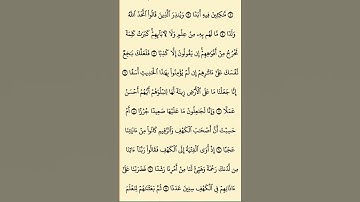 ۝ مَّٰكِثِينَ فِيهِ أَبَدًا ۝ وَيُنذِرَ ٱلَّذِينَ قَالُوا۟ ٱتَّخَذَ ٱللَّهُ
وَلَدًا ۝ مَّا لَهُم بِهِۦ مِنْ عِلْمٍ وَلَا لِـَٔابَآئِهِمْ ۚ كَبُرَتْ كَلِمَةً
تَخْرُجُ مِنْ أَفْوَٰهِهِمْ ۚ إِن يَقُولُونَ إِلَّا كَذِبًا ۝ فَلَعَلَّكَ بَٰخِعٌ
نَّفْسَكَ عَلَىٰٓ ءَاثَٰرِهِمْ إِن لَّمْ يُؤْمِنُوا۟ بِهَٰذَا ٱلْحَدِيثِ أَسَفًا ۝
إِنَّا جَعَلْنَا مَا عَلَى ٱلْأَرْضِ زِينَةً لَّهَا لِنَبْلُوَهُمْ أَيُّهُمْ أَحْسَنُ
عَمَلًا ۝ وَإِنَّا لَجَٰعِلُونَ مَا عَلَيْهَا صَعِيدًا جُرُزًا ۝ أَمْ
حَسِبْتَ أَنَّ أَصْحَٰبَ ٱلْكَهْفِ وَٱلرَّقِيمِ كَانُوا۟ مِنْ ءَايَٰتِنَا
عَجَبًا ۝ إِذْ أَوَى ٱلْفِتْيَةُ إِلَى ٱلْكَهْفِ فَقَالُوا۟ رَبَّنَآ ءَاتِنَا
مِن لَّدُنكَ رَحْمَةً وَهَيِّئْ لَنَا مِنْ أَمْرِنَا رَشَدًا ۝ فَضَرَبْنَا عَلَىٰٓ
ءَاذَانِهِمْ فِى ٱلْكَهْفِ سِنِينَ عَدَدًا ۝ ثُمَّ بَعَثْنَٰهُمْ لِنَعْلَمَ